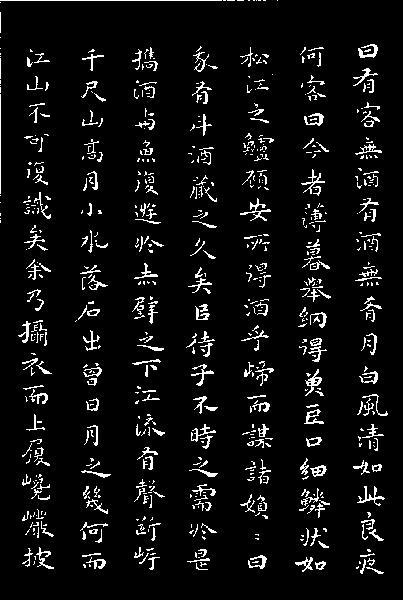 曰有客無酒有酒無肴月白風清如此良夜
何客曰今者薄暮舉網得魚巨口細鱗狀如
松江之鱸顧安所得酒乎歸而謀諸婦〻曰
我有斗酒藏之久矣㠯待子不時之需於是
攜酒与魚復遊於赤壁之下江流有聲斷岸
千尺山高月小水落石出曾日月之幾何而
江山不可復識矣余乃攝衣而上履巉巖披